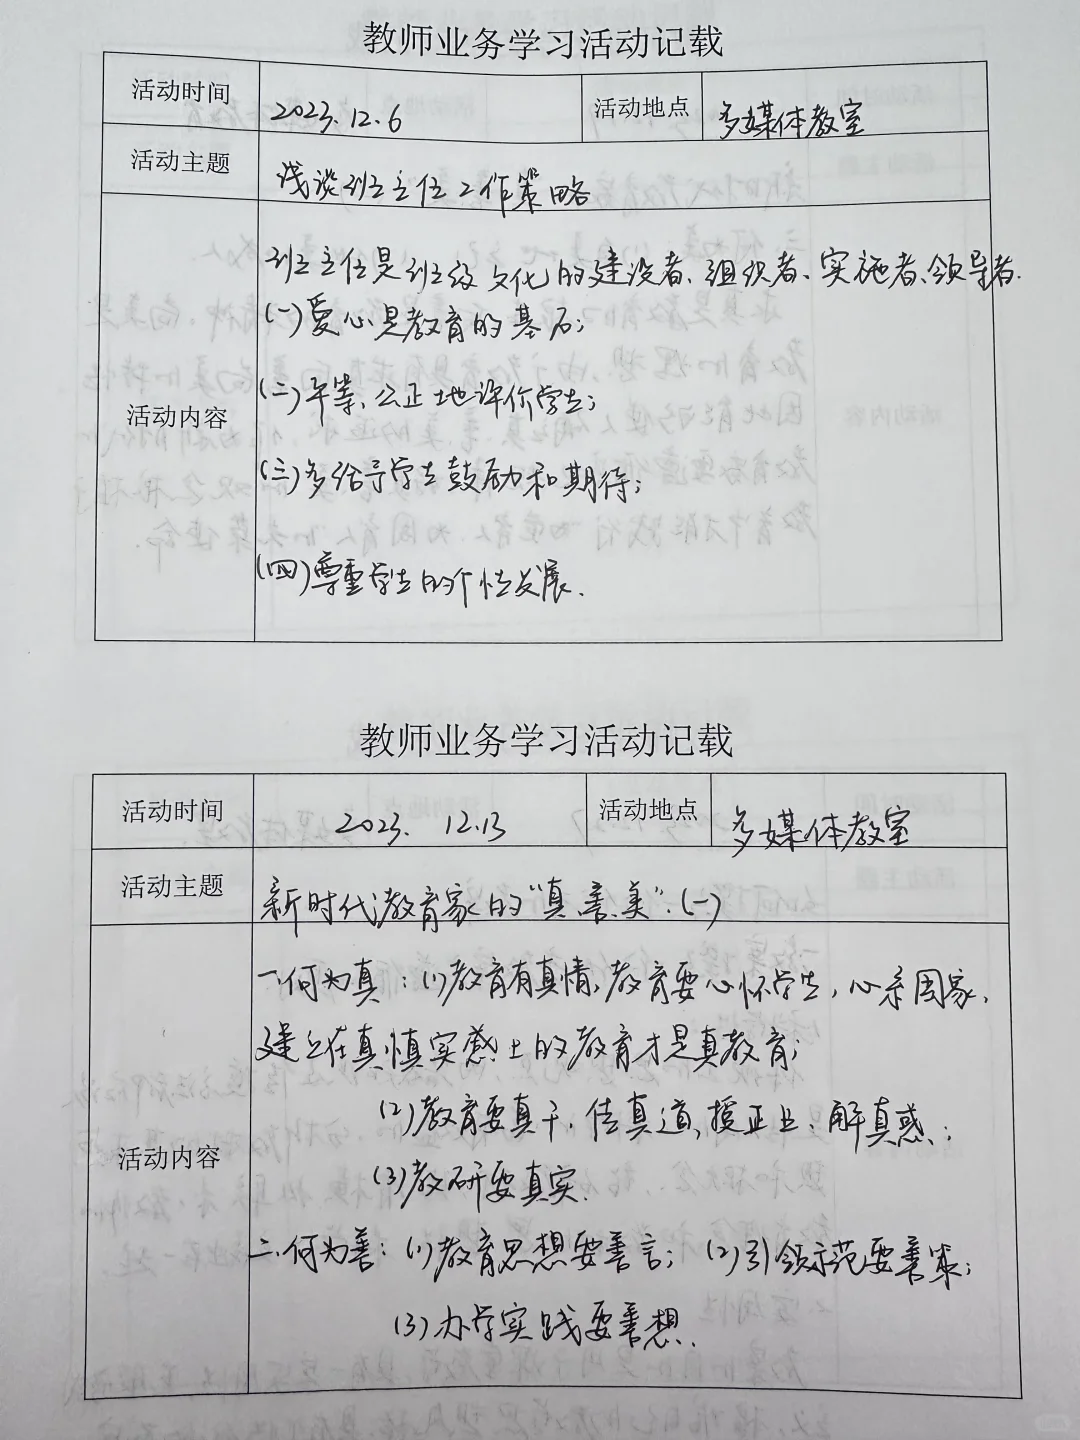 教师业务学习活动记载
活动时间 2023.12.6 活动地点 多媒体教室
活动主题 浅谈班主任工作策略
班主任是班级文化的建设者、组织者、实施者、领导者.
(一)爱心是教育的基石;
(二)平等、公正地评价学生;
活动内容
(三)多给予学生鼓励和期待;
(四)尊重学生的个性发展.
教师业务学习活动记载
活动时间 2023. 12.13 活动地点 多媒体教室
活动主题 新时代教育家的“真、善、美”.(一)
一.何为真:(1)教育有真情,教育要心怀学生,心系国家,
建立在真情实感上的教育才是真教育;
(2)教育要真干,传真道,授正业,解真惑;
活动内容
(3)教研要真实.
二.何为善:(1)教育思想要善言;(2)引领示范要善策;
(3)办学实践要善想.